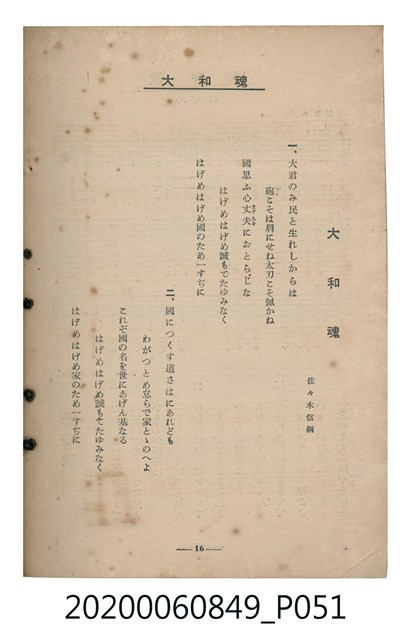 大和魂
大和魂
佐々木信綱
一、大君のみ民と生れしからは
砲こそは肩にせね太刀こそ佩かね
國思ふ心丈夫におとらじな
はげめはげめ誠もてたゆみなく
はげめはげめ國のため一すぢに
二、國につくす道さはにあれども
わがつとめ怠らで家とゝのへよ
これぞ國の名を世にあげん基なる
はげめはげめ誠もてたゆみなく
はげめはげめ家のため一すぢに
16
20200060849_P051